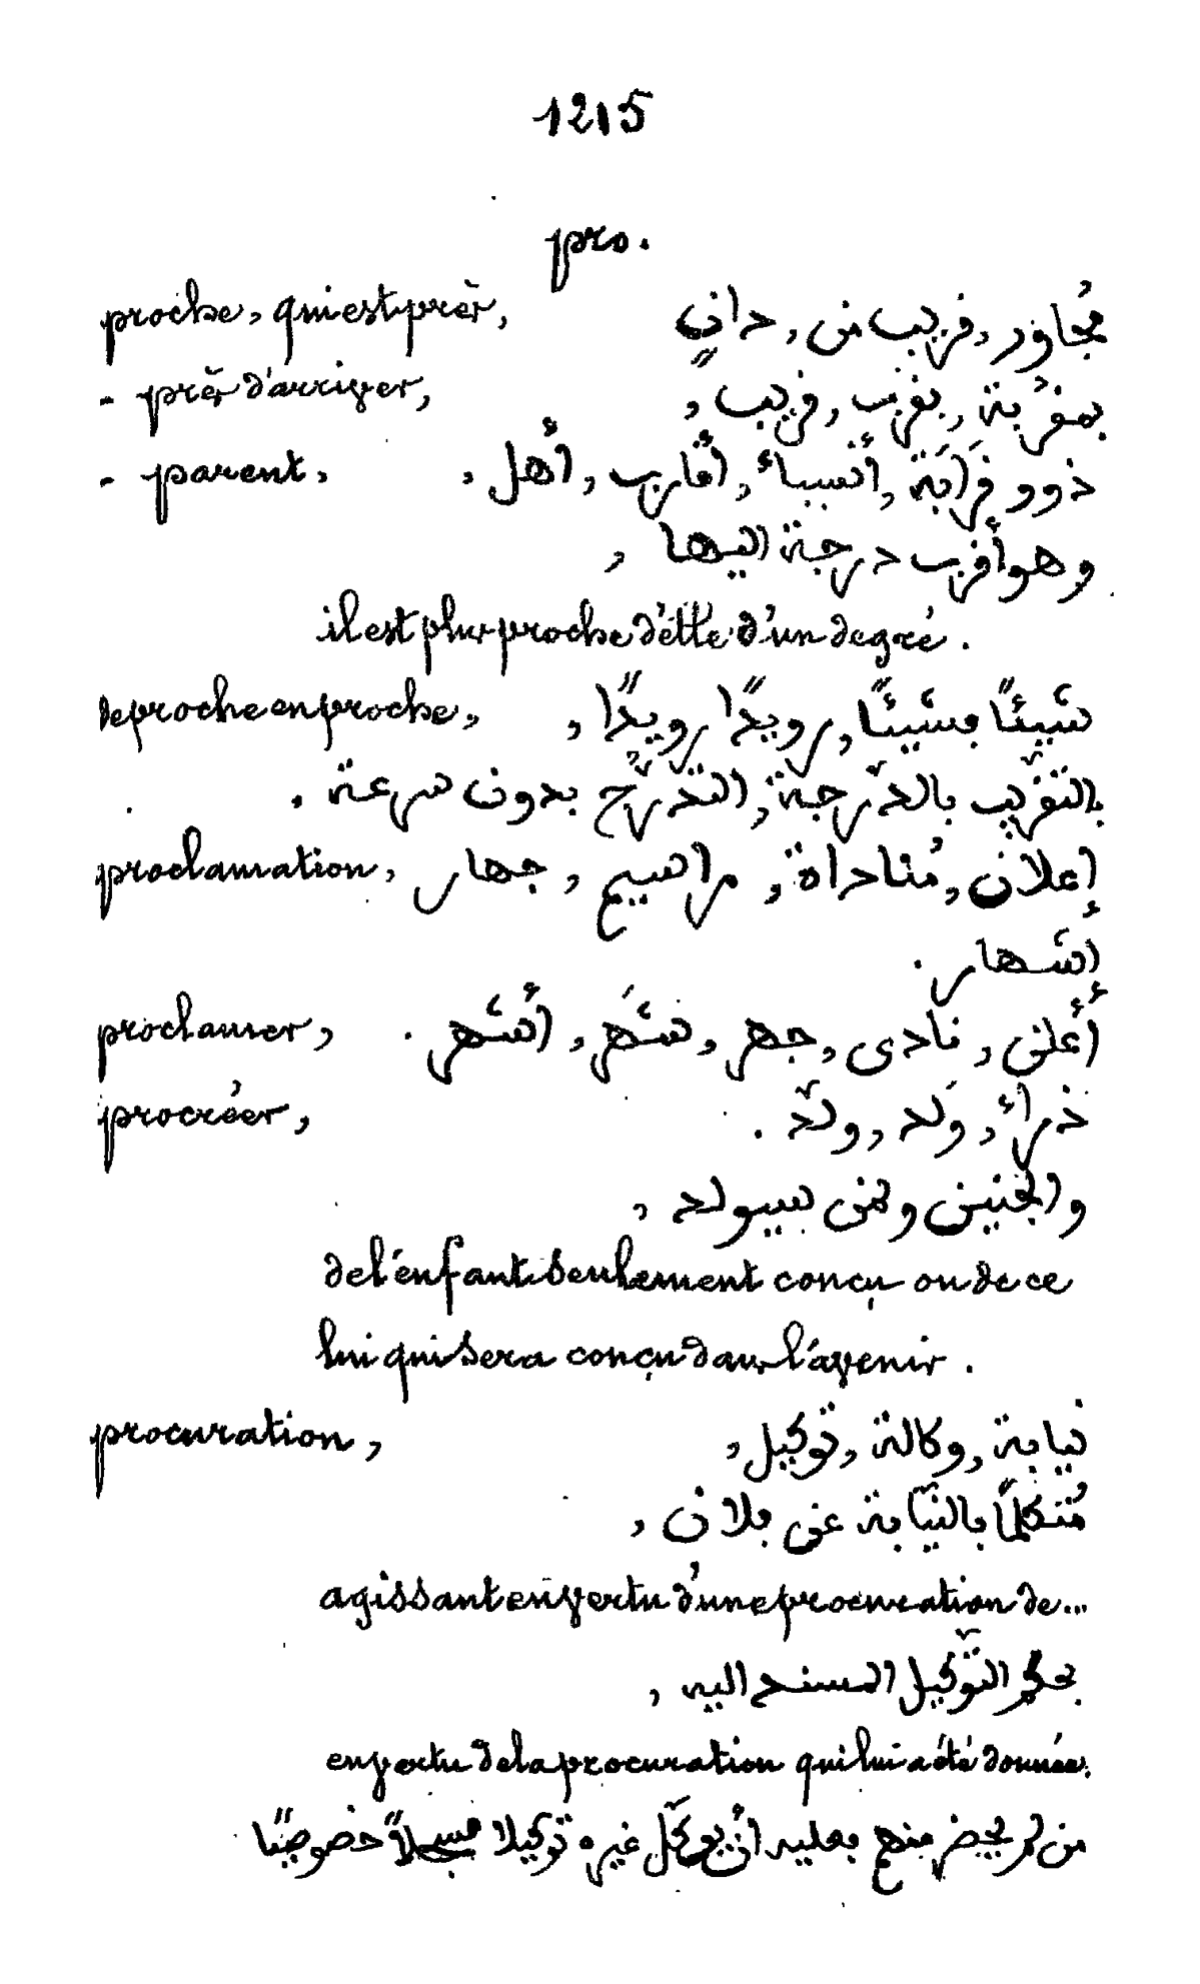 1215
pro.
proche, qui est près, مُجاوِر, قريب من, دانٍ
- près d'arriver, بمقرُبة, بقرب, قريب,
- parent, ذوو قَرَابَة, أنسباء, أقارب, أهل,
وهو أقرب درجة اليها,
il est plus proche d'elle d'un degré.
de proche en proche, شيئًا فشيئًا, رويدًا رويدًا,
بالتقريب بالدّرجة, التدرّج بدون سرعة.
proclamation, إعلان, مُناداة, مراسيم, جهار
إشهار.
proclamer, أعلن, نادى, جهر, شهَر, أشهر.
procréer, ذرأ, وَلد, ولّد.
والجنين ولمن سيولد,
de l'énfant seulement conçu ou de ce
lui qui sera conçu dans l'avenir.
procuration, نيابة, وكالة, توكيل,
مُتكلمًا بالنّيابة عن فلان,
agissant en vertu d'une procuration de...
بحكم التّوكيل المسند اليه,
en vertu de la procuration qui lui a été donnée.
من لم يحضر منهم فعليه أن يوكّل غيره توكيلا مسجلاً خصوصيًا